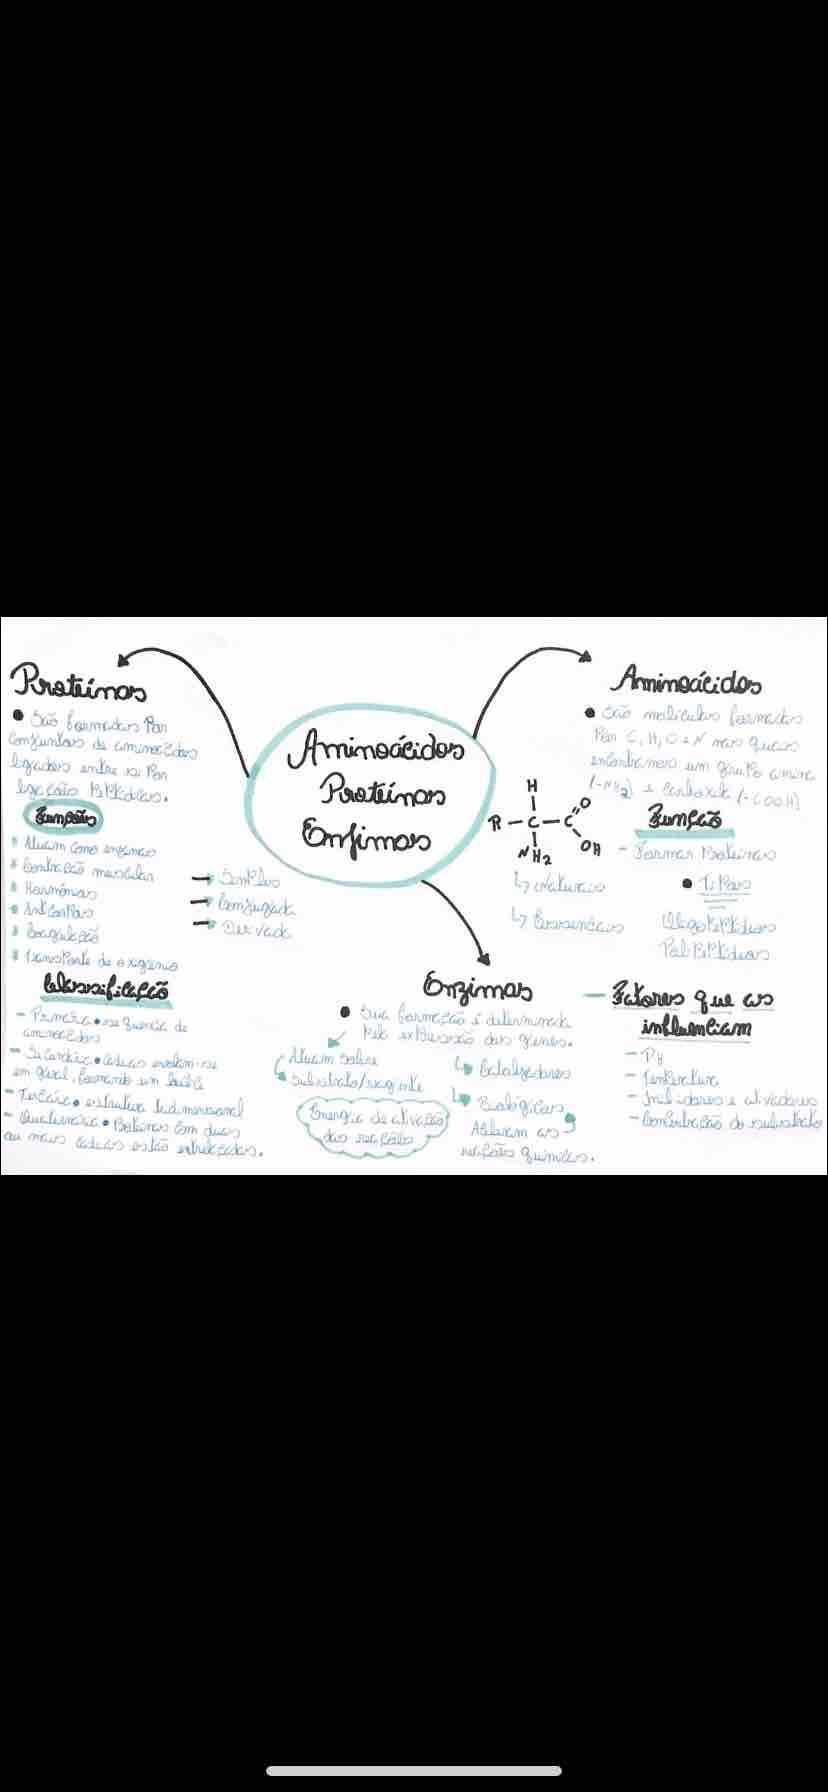 Aminoácidos
Proteínas
Enzimas
Proteínas
São formadas por
conjuntos de aminoácidos
ligados entre si por
ligação Peptídicas.
Funções
Atuam como enzimas
Contração muscular
Hormônios
Anticorpos
Coagulação
Transporte de oxigênio
→ Simples
→ Conjugada
→ Derivada
Classificação
- Primária • sequência de
aminoácidos
- Secundária • cadeias enrolam-se
em geral, formando um
- Terciária • estrutura tridimensional
- Quaternária • Proteínas com duas
ou mais cadeias estão entrelaçadas.
Aminoácidos
São moléculas formadas
Por C, H, O e N nas quais
encontramos um grupo amina
(-NH2) e carboxila (-COOH)
H
R - C - C = O
NH2 OH
↳ Naturais
↳ Essenciais
Função
- Formar Proteínas
Tipos
Oligopeptídeos
Polipeptídeos
Enzimas
Sua formação é determinada
Pela expressão dos genes.
Atuam sobre
substrato/reagente
Energia de ativação
das reações
Catalizadores
Biológicos
Aceleram as
reações químicas.
- Fatores que as
influenciam
- PH
- Temperatura
- Inibidores e ativadores
- Concentração do substrato